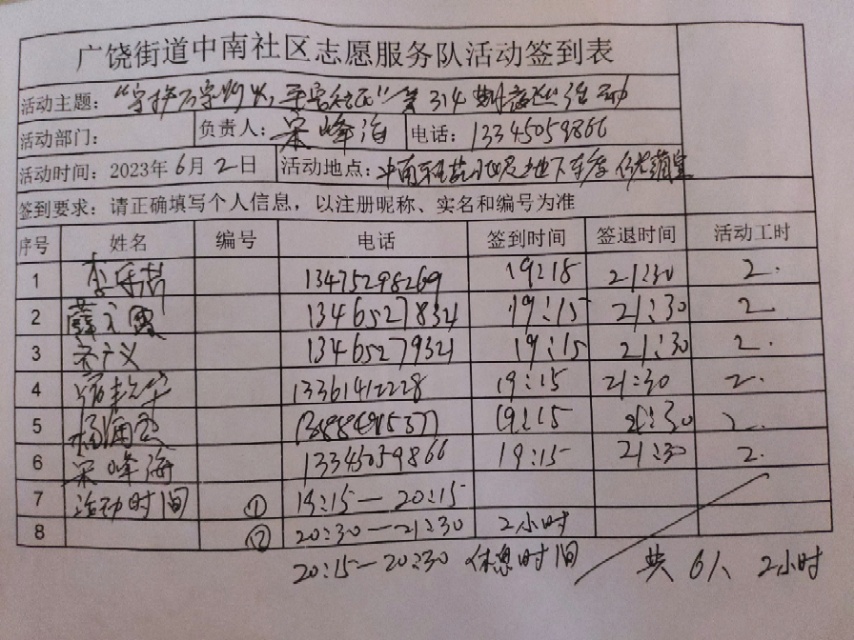 广饶街道中南社区志愿服务队活动签到表
活动主题：“守护万家灯火，平安社区”第314期夜巡活动
活动部门： 负责人：宋峰海 电话：13345059866
活动时间：2023年6月2日 活动地点：中南 地下车库
签到要求：请正确填写个人信息，以注册昵称、实名和编号为准
序号 姓名 编号 电话 签到时间 签退时间 活动工时
1 13475298269 19:15 21:30 2.
2 13465277834 19:15 21:30 2.
3 13465279321 19:15 21:30 2.
4 13361412228 19:15 21:30 2.
5 19:15 21:30 2.
6 宋峰海 13345059866 19:15 21:30 2.
7 活动时间 ① 19:15—20:15
8 ② 20:30—21:30 2小时
20:15—20:30 休息时间 共6人 2小时